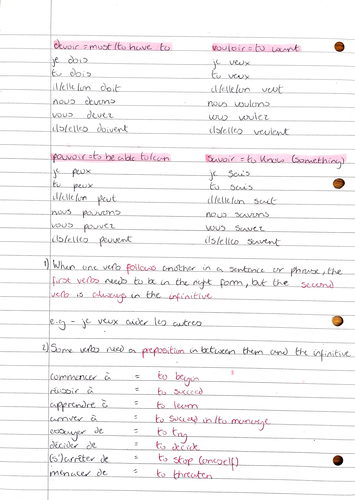 devoir = must/to have to    vouloir = to want
je dois    je veux
tu dois    tu veux
il/elle/on doit    il/elle/on veut
nous devons    nous voulons
vous devez    vous voulez
ils/elles doivent    ils/elles veulent
pouvoir = to be able to/can    savoir = to know (something)
je peux    je sais
tu peux    tu sais
il/elle/on peut    il/elle/on sait
nous pouvons    nous savons
vous pouvez    vous savez
ils/elles peuvent    ils/elles savent
1) When one verb follows another in a sentence or phrase, the
first verb needs to be in the right form, but the second
verb is always in the infinitive
e.g - je veux aider les autres
2) Some verbs need a preposition in between them and the infinitive
commencer à = to begin
réussir à = to succeed
apprendre à = to learn
arriver à = to succeed in/to manage
essayer de = to try
décider de = to decide
(s')arrêter de = to stop (oneself)
menacer de = to threaten